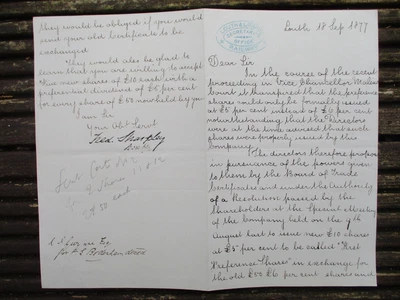 LOUTH & LINCOLN
SECRETARY
RAILWAY
Louth 18 Sep 1877
Dear Sir
In the course of the recent
proceeding in Vice Chancellor Malins
Court it transpired that the preference
shares could only be formally issued
at £5 per cent instead of £6 per cent
notwithstanding that the Directors
were at the time advised that such
shares were properly issued by this
Company.
The directors therefore propose
in pursuance of the powers given
to them by the Board of Trade
Certificates and under the Authority
of a Resolution passed by the
Shareholders at the Special Meeting
of the Company held on the
August last to issue new £10 shares
at £5 per cent to be called "First
Preference Shares" in exchange for
the old £50 £6 per cent shares and
they would be obliged if you would
send your old Certificate to be
exchanged
They would also be glad to
learn that you are willing to accept
new shares of £10 each with a
preferential dividend of £5 per cent
for every share of £50 now held by you
I am Sir
Your Obt Servt
Fred. Sharpley